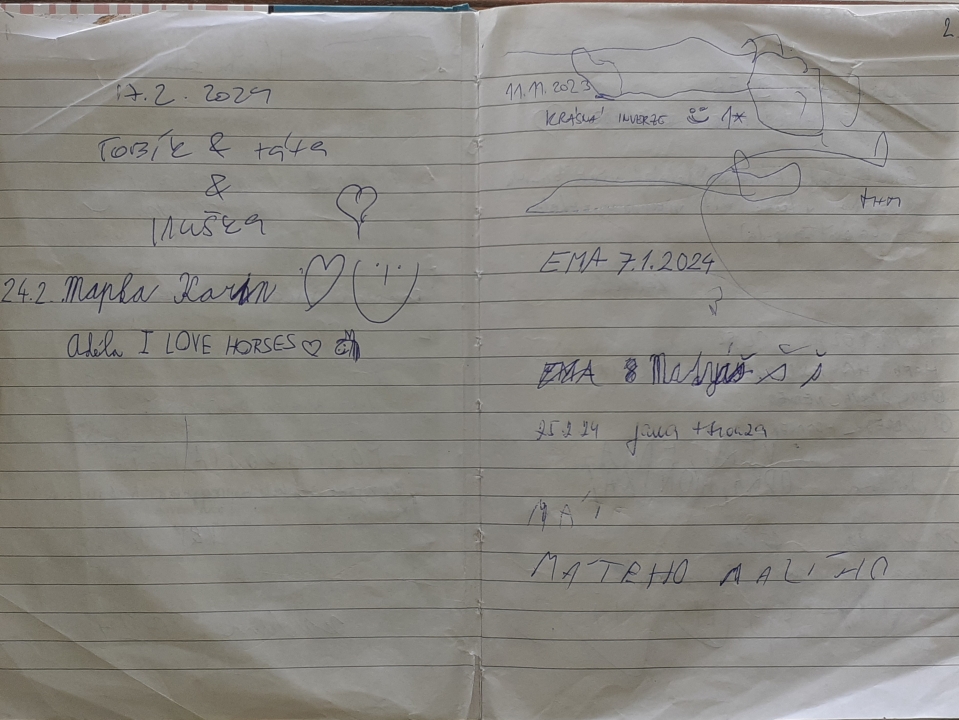 17.2. 2024
TOBÍK & táta
&
24.2.
Adéla I LOVE HORSES
2.
11.11.2023
KRÁSNÁ INVERZE 1*
EMA 7.1.2024
EMA Matyáš Š Š
25 2 24 jana + honza
MÁ
MATEHO MALÍHO